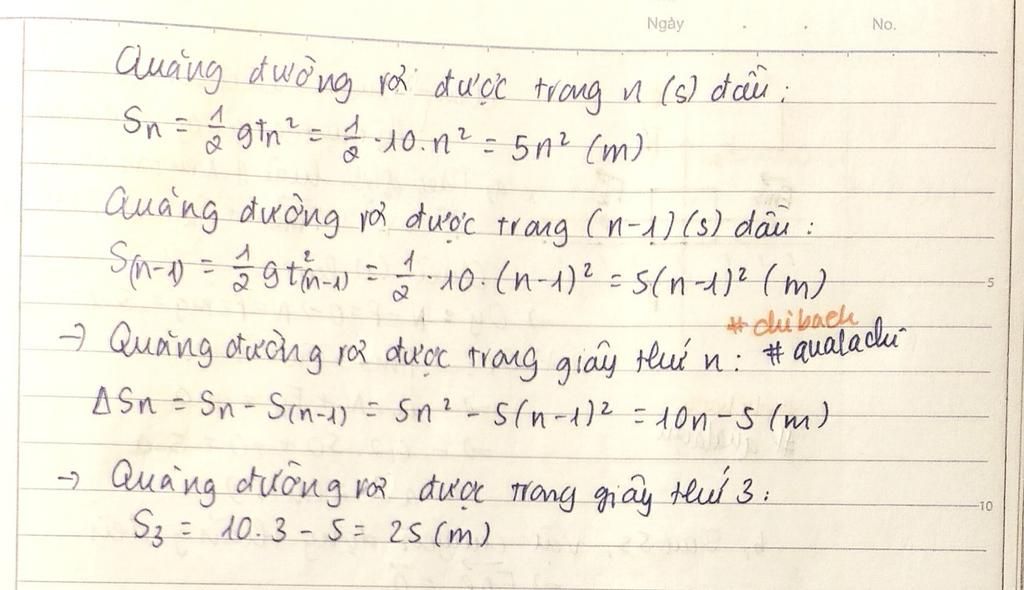 Ngày . . No.
Quãng đường rơi được trong n (s) đầu:
Sn = 1/2 gtn² = 1/2 · 10 · n² = 5n² (m)
Quãng đường rơi được trong (n-1) (s) đầu:
S(n-1) = 1/2 gt²(n-1) = 1/2 · 10 · (n-1)² = 5(n-1)² (m)
5
#chibach
→ Quãng đường rơi được trong giây thứ n: #qualachi
ΔSn = Sn - S(n-1) = 5n² - 5(n-1)² = 10n - 5 (m)
→ Quãng đường rơi được trong giây thứ 3:
10
S₃ = 10.3 - 5 = 25 (m)